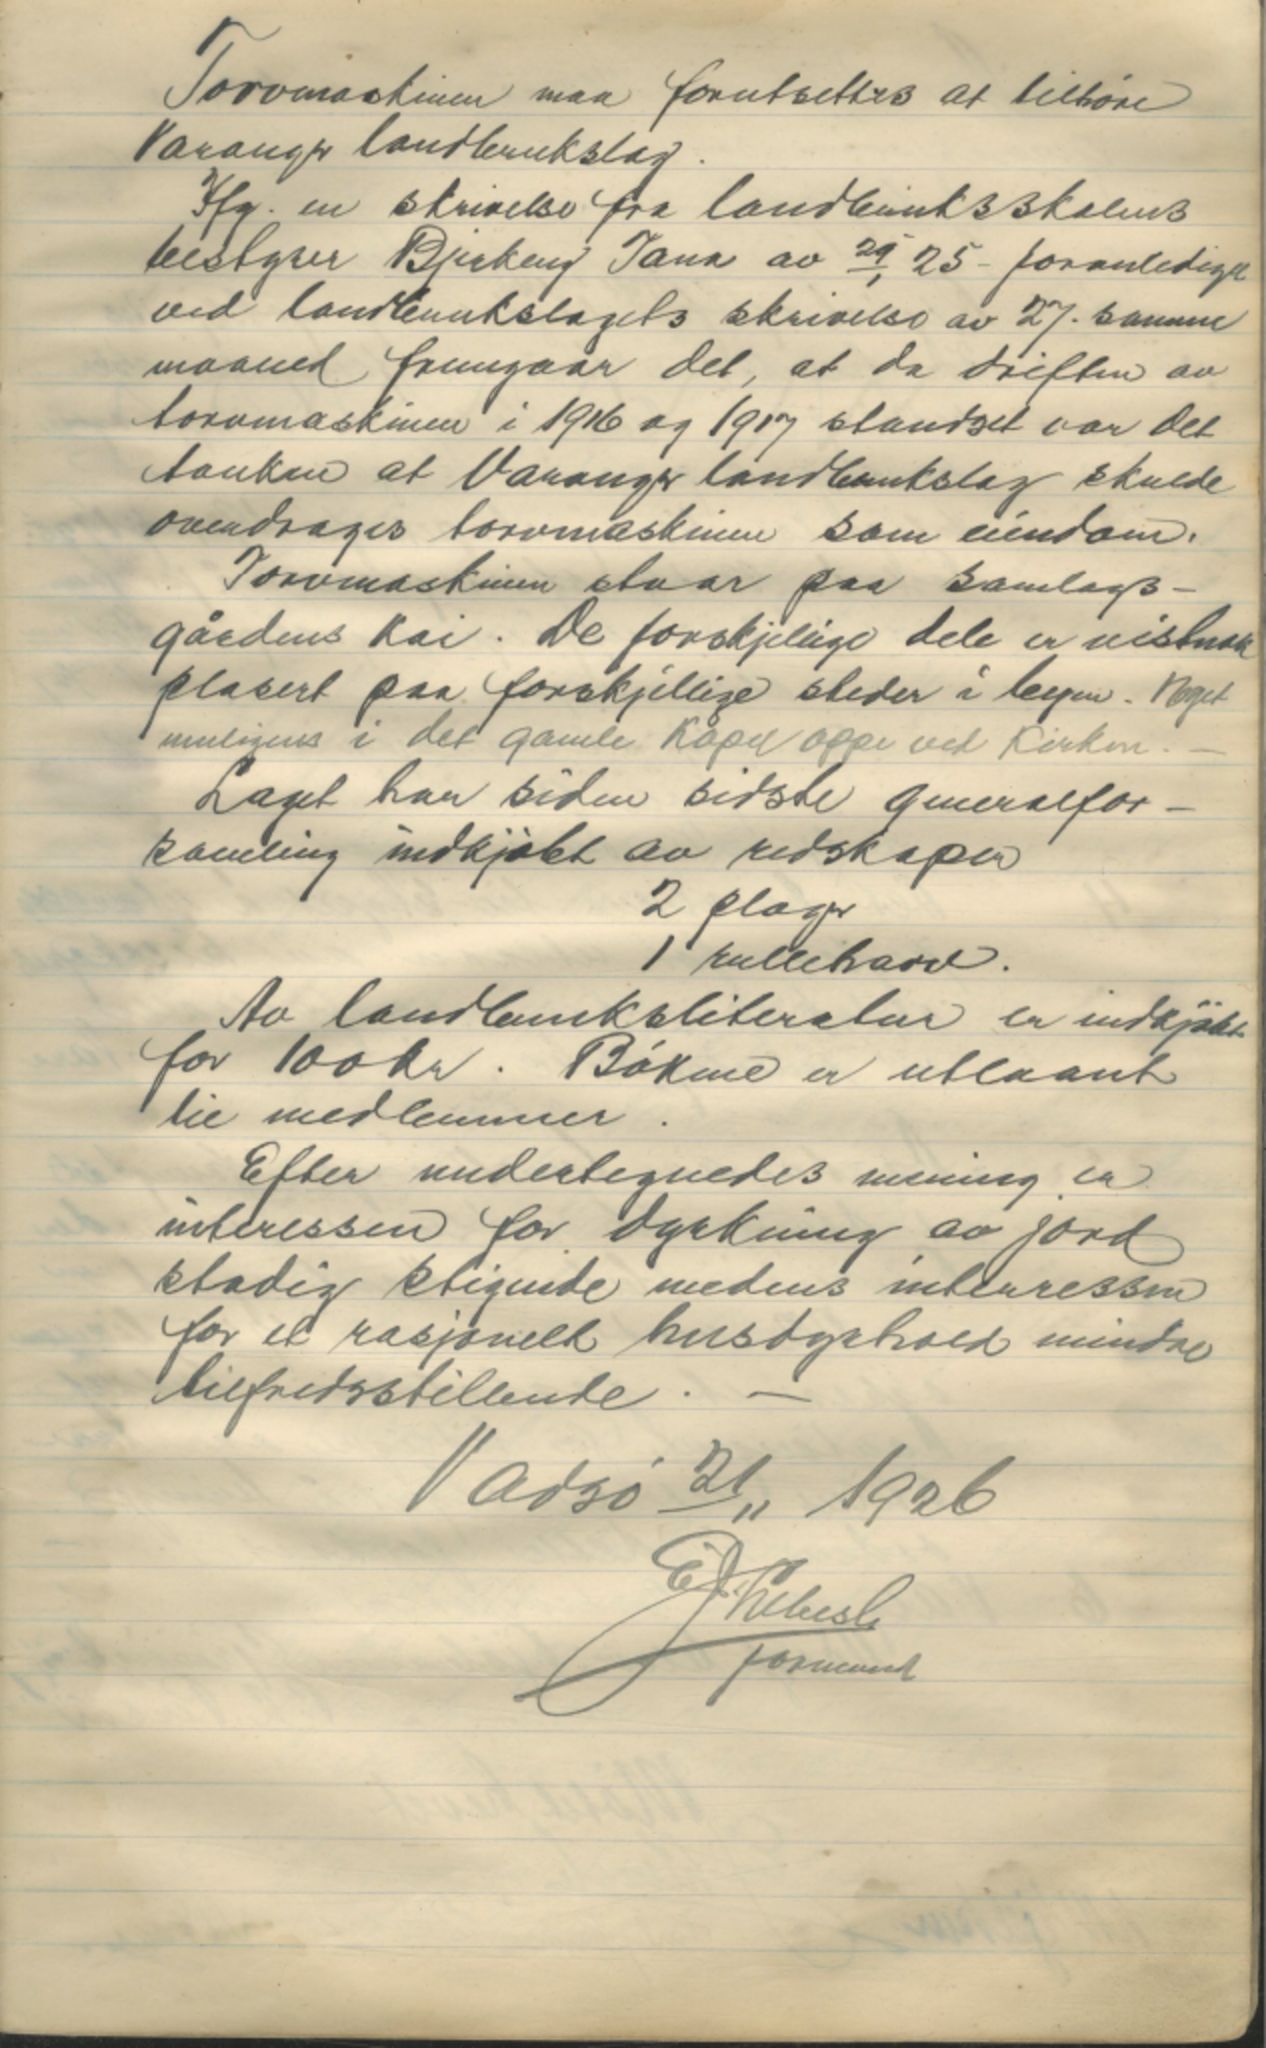 Torvmaskinen maa forutsettes at tilhøre
Varanger landbrukslag.
Ifg. en skrivelse fra landbruksskolens
bestyrer Bjerkeng Tana av 29/1 25 - foranlediget
ved landbrukslagets skrivelse av 27. samme
maaned fremgaar det, at da driften av
torvmaskinen i 1916 og 1917 standset var det
tanken at Varanger landbrukslag skulde
overdrages torvmaskinen som eiendom.
Torvmaskinen staar paa samlags-
gårdens Kai. De forskjellige dele er vistnok
plasert paa forskjellige steder i byen. Noget
muligens i det gamle Kapel oppe ved Kirken. -
Laget har siden sidste generalfor-
samling indkjøbt av redskaper
2 ploger
1 rulleharv.
Av landbruksliteratur er indkjøbt
for 100 kr. Bøkene er utlaant
til medlemmer.
Efter undertegnedes mening er
interessen for dyrkning av jord
stadig stigende medens interressen
for et rasjonelt husdyrhold mindre
tilfredsstillende. -
Vadsø 21/11 1926
formand